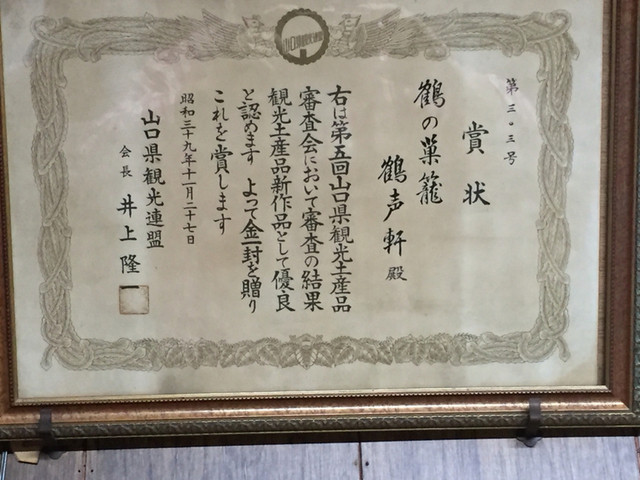 第三〇三号
賞状
鶴の巣籠
鶴声軒殿
右は第五回山口県観光土産品
審査会において審査の結果
観光土産品新作品として優良
と認めます よって金一封を贈り
これを賞します
昭和三十九年十一月二十七日
山口県観光連盟
会長 井上隆一